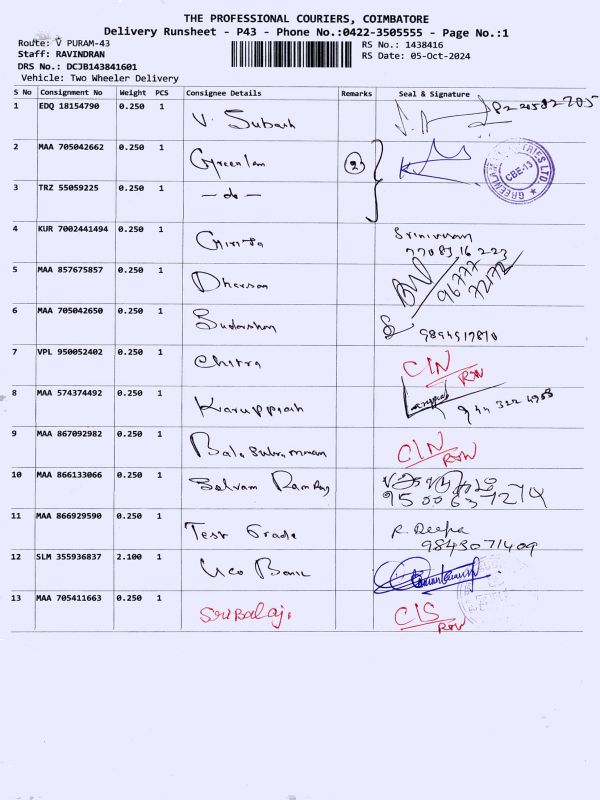 THE PROFESSIONAL COURIERS, COIMBATORE
Delivery Runsheet - P43 - Phone No.:0422-3505555 - Page No.:1
Route: V PURAM-43
RS No.: 1438416
Staff: RAVINDRAN
RS Date: 05-Oct-2024
DRS No.: DCJB143841601
Vehicle: Two Wheeler Delivery
S No Consignment No Weight PCS Consignee Details Remarks Seal & Signature
1 EDQ 18154790 0.250 1 V. Subash
2 MAA 705042662 0.250 1 Greenlam 2
CBE-13
3 TRZ 55059225 0.250 1 - do -
4 KUR 7002441494 0.250 1 Srinivasan
77083 16 223
5 MAA 857675857 0.250 1 Dharson 96777 72172
6 MAA 705042650 0.250 1 Sudarshan 9894517810
7 VPL 950052402 0.250 1 Chitra C/N
RTN
8 MAA 574374492 0.250 1 Karuppiah 944 322 4963
9 MAA 867092982 0.250 1 Balasubramaniam C/N
RTN
10 MAA 866133066 0.250 1 Selvam
9500637274
11 MAA 866929590 0.250 1 Test Grade R. Deepa
9843071409
12 SLM 355936837 2.100 1 Uco Bank
13 MAA 705411663 0.250 1 Sri Balaji C/S
RTN